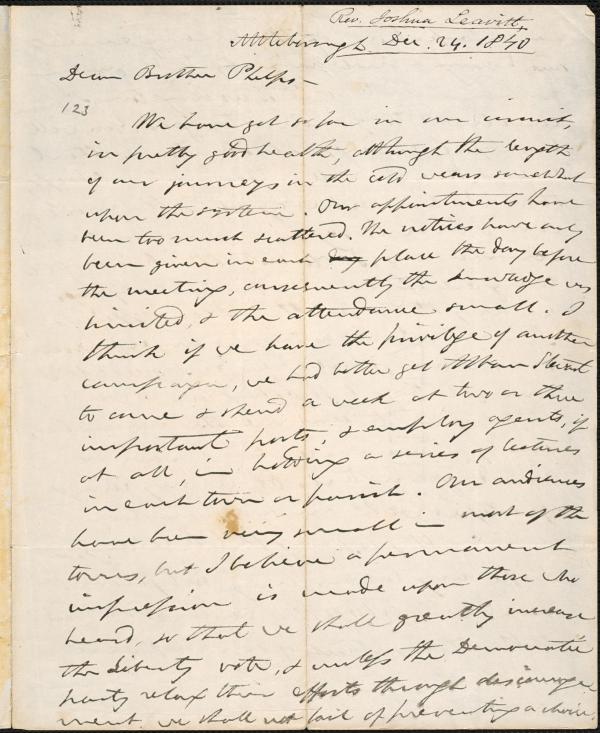 Rev. Joshua Leavitt,
Attleborough Dec. 24. 1840
Dear Brother Phelps—
123
We have got so far in our circuit,
in pretty good health, although the length
of our journeys in the cold wears somewhat
upon the system. Our appointments have
been too much scattered. The notices have only
been given in each day place the day before
the meeting, consequently the knowledge was
limited, & the attendance small. I
think if we have the privilege of another
campaign, we had better get Alvan Stewart
to come & spend a week at two or three
important parts, & employ agents, if
at all, in holding a series of lectures
in each town or parish. Our audiences
have been very small in most of the
towns, but I believe a permanent
impression is made upon those who
heard, so that we shall greatly increase
the Liberty vote, & unless the Democratic
party relax their efforts through discourage-
ment, we shall not fail of preventing a choice.